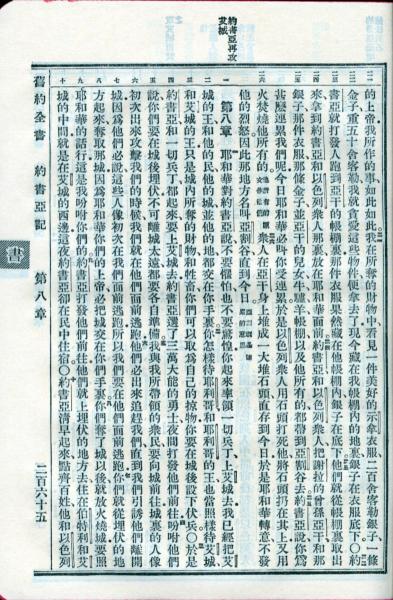 約書亞再攻
艾城
的上帝我所作的事如此如此我在所奪的財物中看見一件美好的示拿衣服二百舍客勒銀子一條
金子重五十舍客勒我就貪愛這些物件便拿去了現今藏在我帳棚內的地裏銀子在衣服底下○約
書亞就打發人跑到亞干的帳棚裏那件衣服果然藏在他帳棚內銀子在底下他們就從帳棚裏取出
來拿到約書亞和以色列衆人那裏放在耶和華面前約書亞和以色列衆人把謝拉的曾孫亞干和那
銀子那件衣服那條金子並亞干的兒女牛驢羊帳棚以及他所有的都帶到亞割谷去約書亞說你爲
甚麽連累我們呢今日耶和華必叫你受連累於是以色列衆人用石頭打死他將石頭打在其上又用
火焚燒他所有的衆人在亞干身上堆成一大堆石頭直存到今日於是耶和華轉意不發
他的烈怒因此那地方名叫亞割谷直到今日
第八章 耶和華對約書亞說不要懼怕也不要驚惶你起來率領一切兵丁上艾城去我已經把艾
城的王和他的民他的城並他的地都交在你手裏你怎樣待耶利哥和耶利哥的王也當照樣待艾城
和艾城的王只是城內所奪的財物和牲畜你們可以取爲自己的掠物你要在城後設下伏兵○於是
約書亞和一切兵丁都起來要上艾城去約書亞選了三萬大能的勇士夜間打發他們前往吩咐他們
說你們要在城後埋伏不可離城太遠都要各自準備我與我所帶領的衆民要向城前往城裏的人像
初次出來攻擊我們的時候我們就在他們面前逃跑他們必出來追趕我們直到我們引誘他們離開
城因爲他們必說這些人像初次在我們面前逃跑所以我們要在他們面前逃跑你們就從埋伏的地
方起來奪取那城因爲耶和華你們的上帝必把城交在你們手裏你們奪了城以後就放火燒城要照
耶和華的話行這是我吩咐你們的約書亞打發他們前往他們就上埋伏的地方去住在伯特利和艾
城的中間就是在艾城的西邊這夜約書亞卻在民中住宿○約書亞清早起來點齊百姓他和以色列
舊約全書 約書亞記 第八章 二百六十五
書